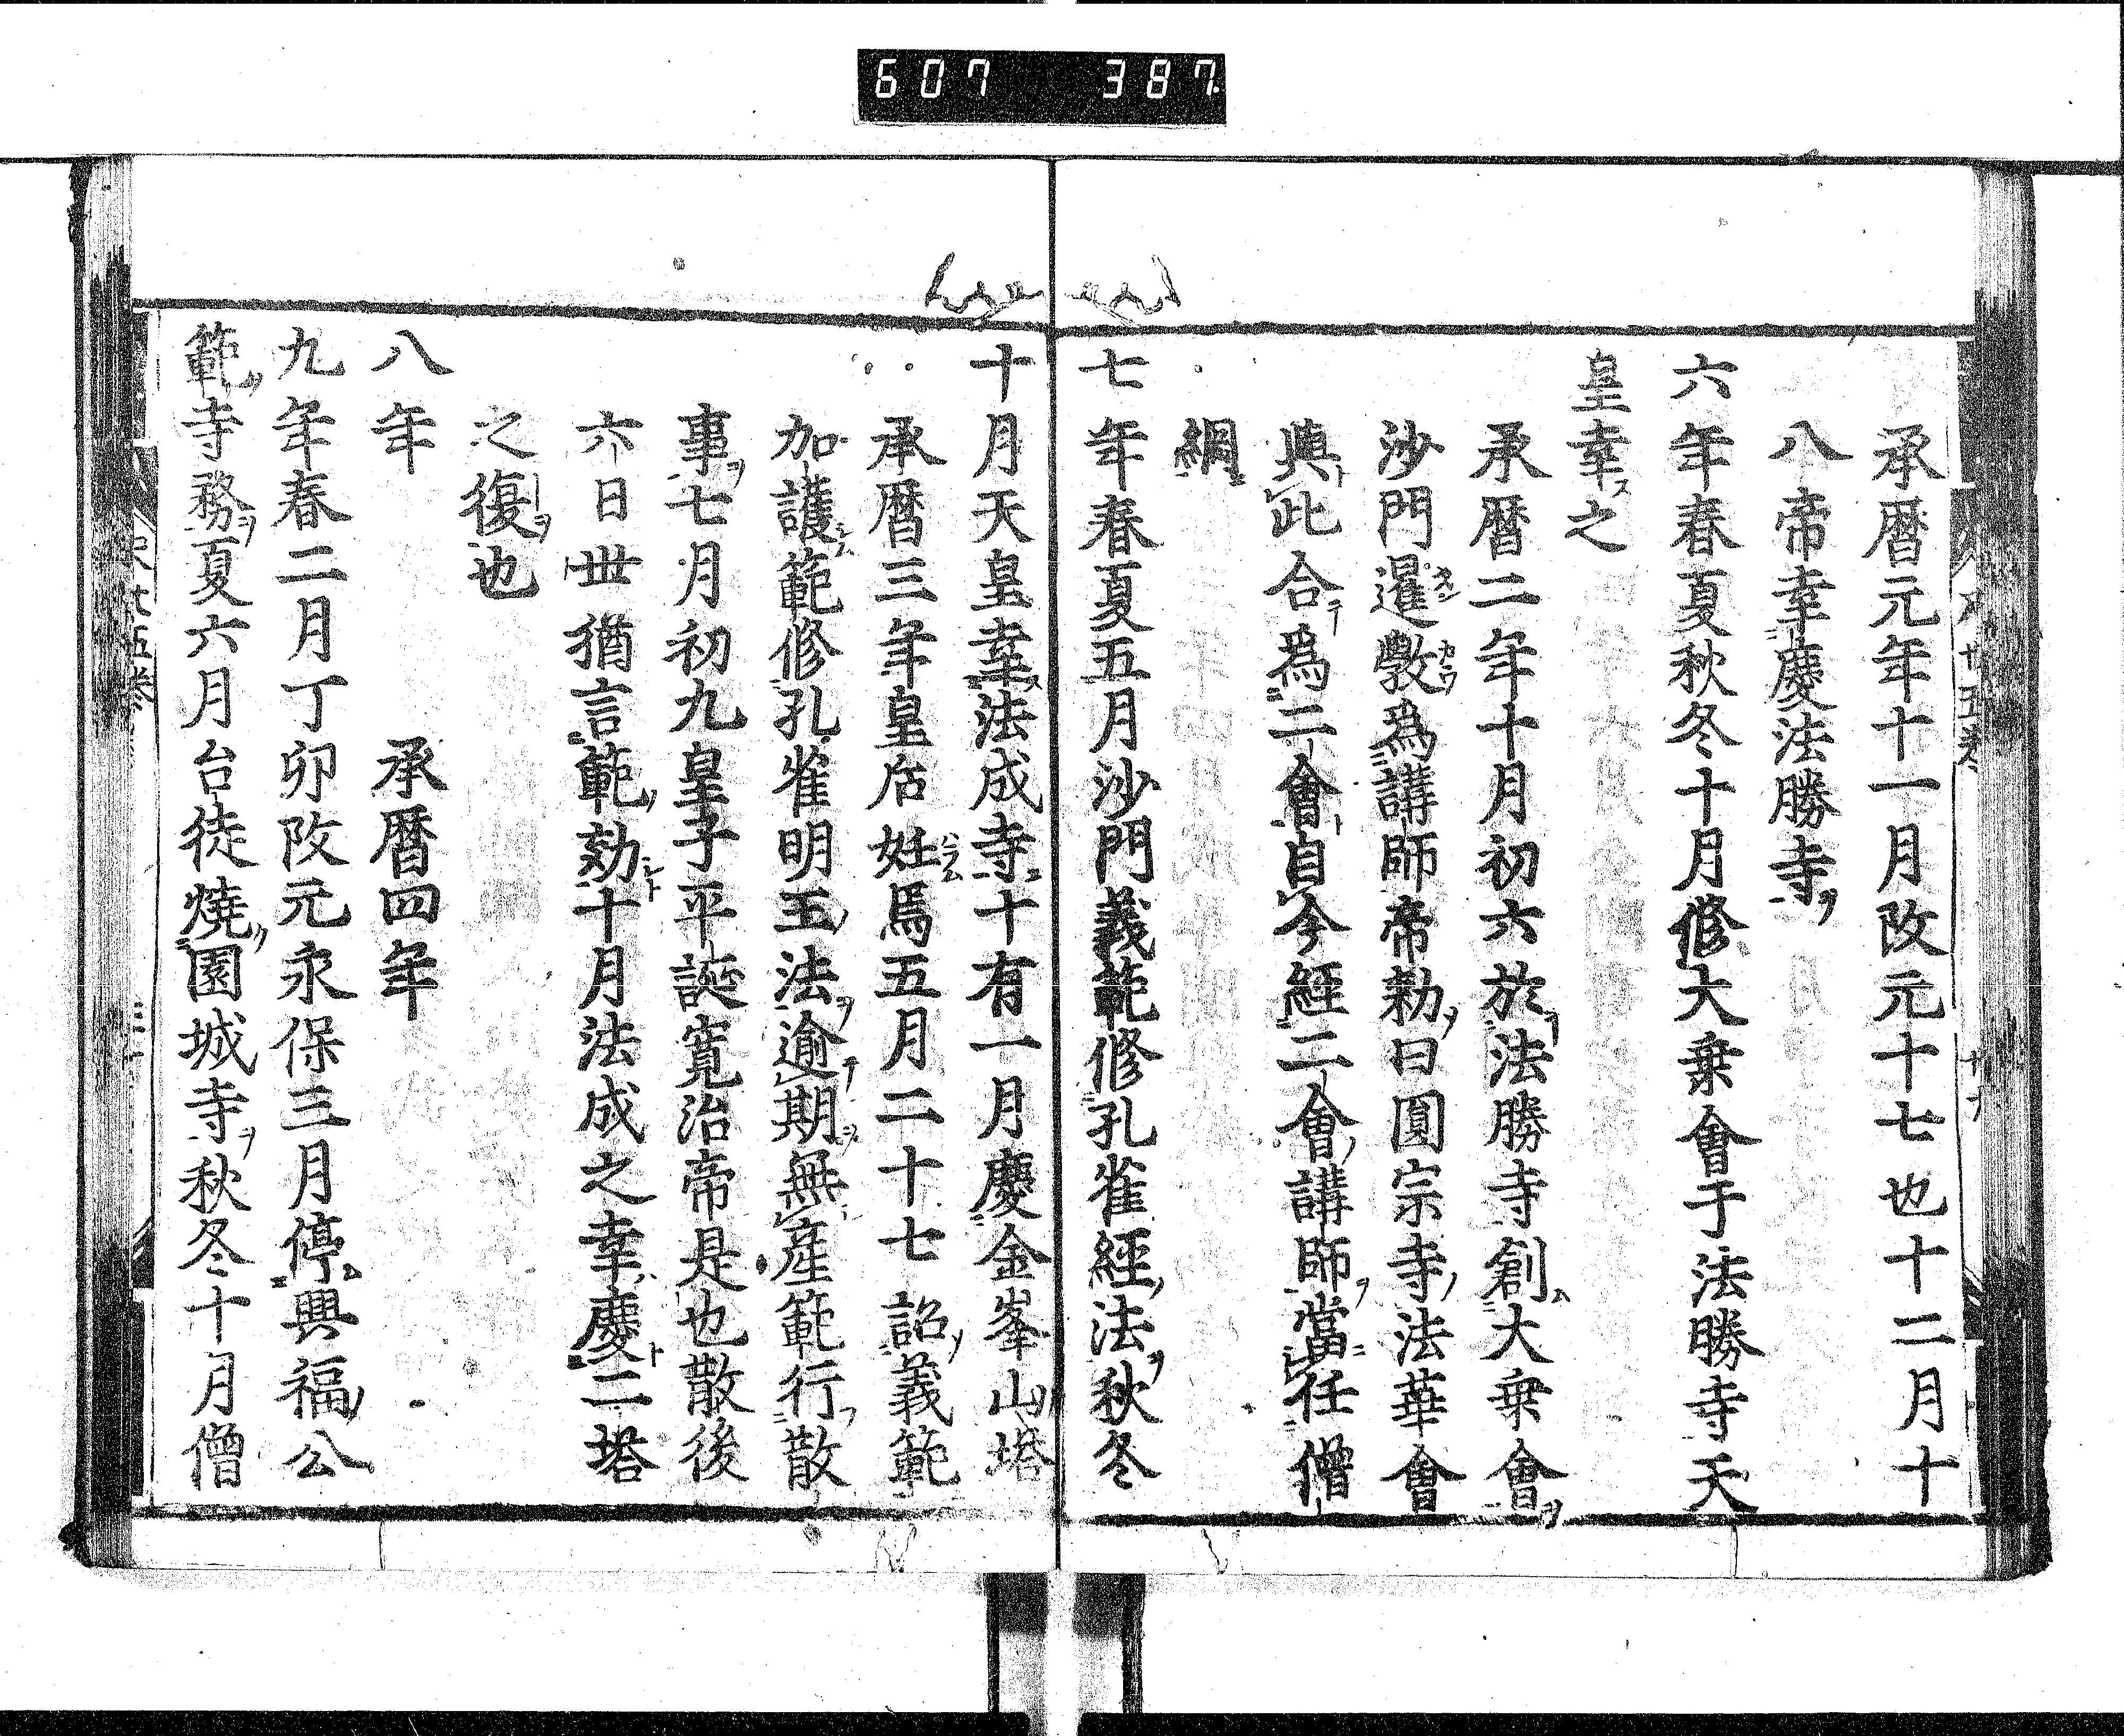 607 387
承暦元年十一月改元十七也十二月十
八帝幸慶法勝寺ヲ
六年春夏秋冬十月修大乗會于法勝寺天
皇幸ス之
承暦二年十月初六於法勝寺創大乗會ヲ
沙門暹斆為講師帝勅曰圓宗寺法華會
與此合為二會自今經二會講師當任僧
綱ニ
七年春夏五月沙門義範修孔雀經法秋冬
十月天皇幸法成寺十有一月慶金峯山塔
承暦三年皇后妊焉五月二十七詔義範
加護範修孔雀明王法逾期無産範行散
事七月初九皇子平誕寛治帝是也散後
六日丗猶言範効十月法成之幸慶二塔
之復也
八年 承暦四年
九年春二月丁卯改元永保三月停興福公
範寺務夏六月台徒燒園城寺秋冬十月僧